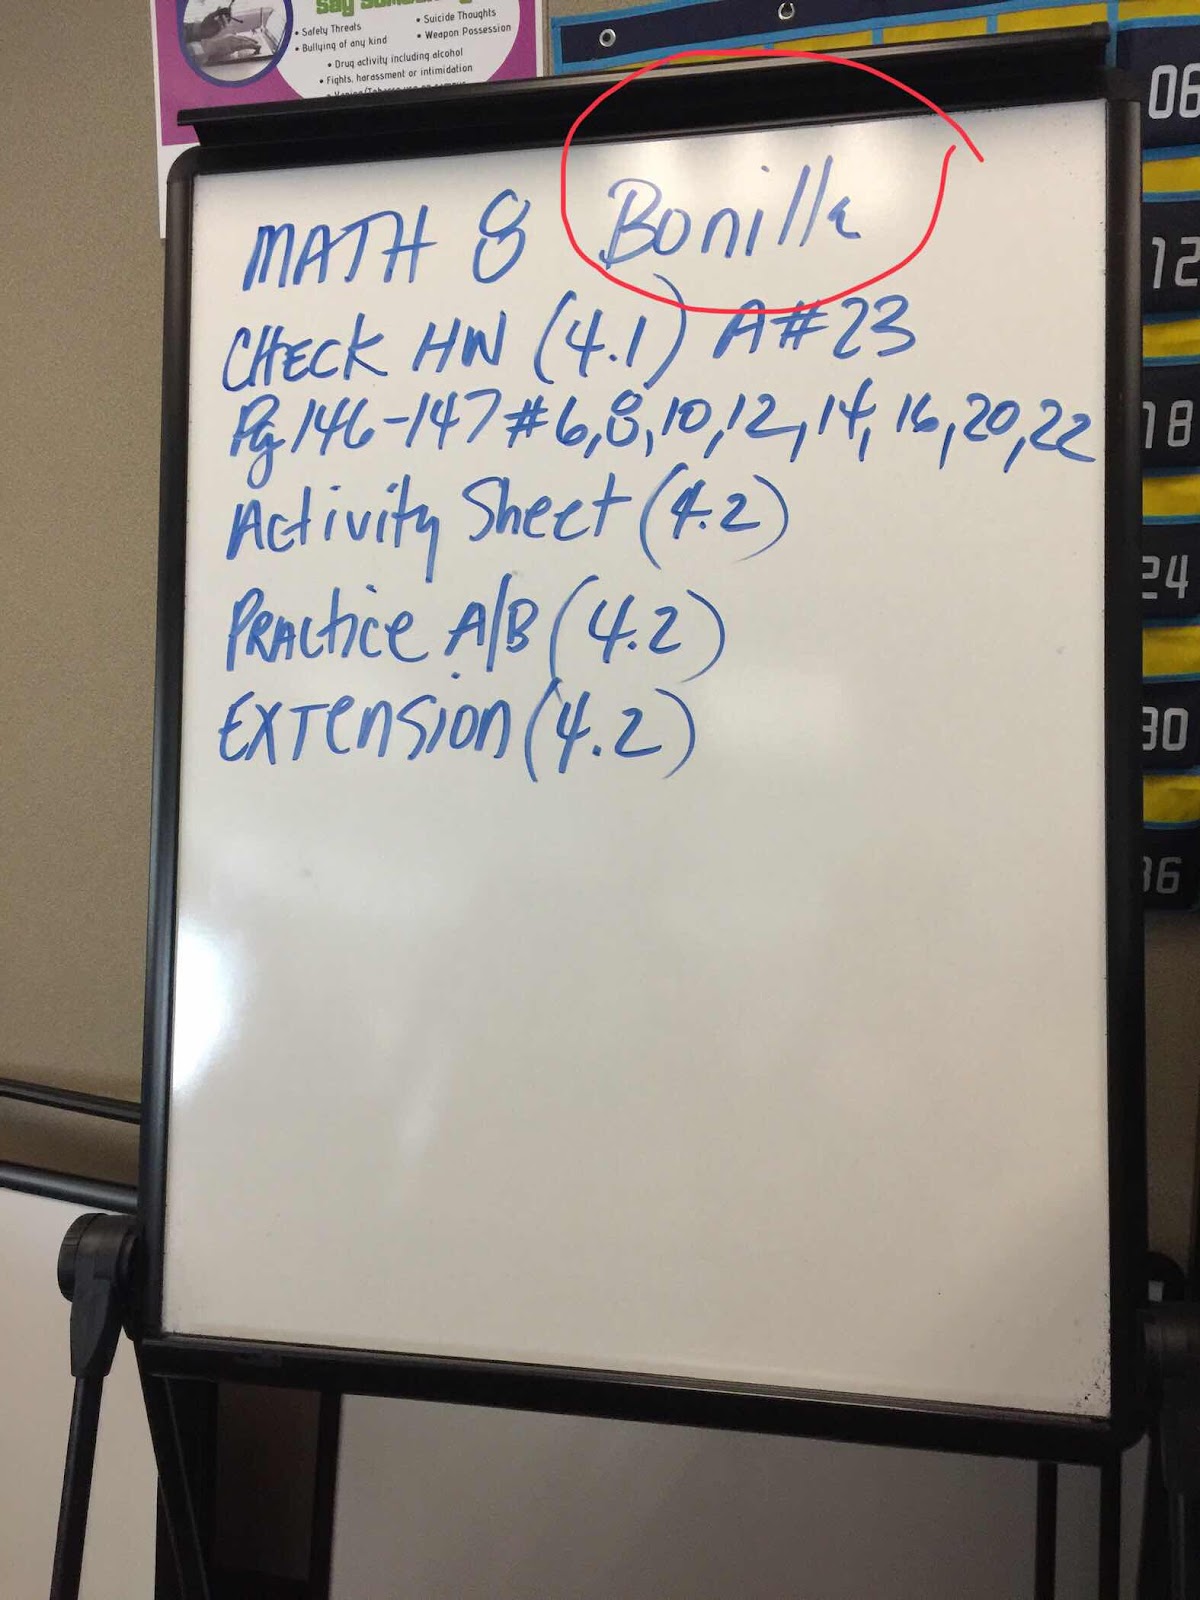 Say Something
• Safety Threats
• Bullying of any kind
• Suicide Thoughts
• Weapon Possession
• Drug activity including alcohol
• Fights, harassment or intimidation
MATH 8 Bonilla
CHECK HW (4.1) A#23
Pg 146-147 #6,8,10,12,14,16,20,22
Activity Sheet (4.2)
PRACtice A/B (4.2)
EXTension (4.2)
06
12
18
24
30
36